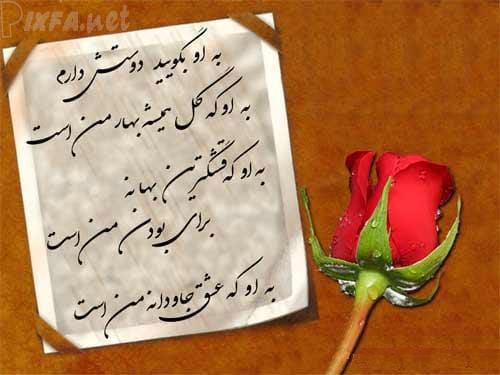 PIXFA.net
به او بگویید دوستش دارم
به او که گل همیشه بهار من است
به او که قشنگترین بهانه
برای بودن من است
به او که عشق جاودانه من است